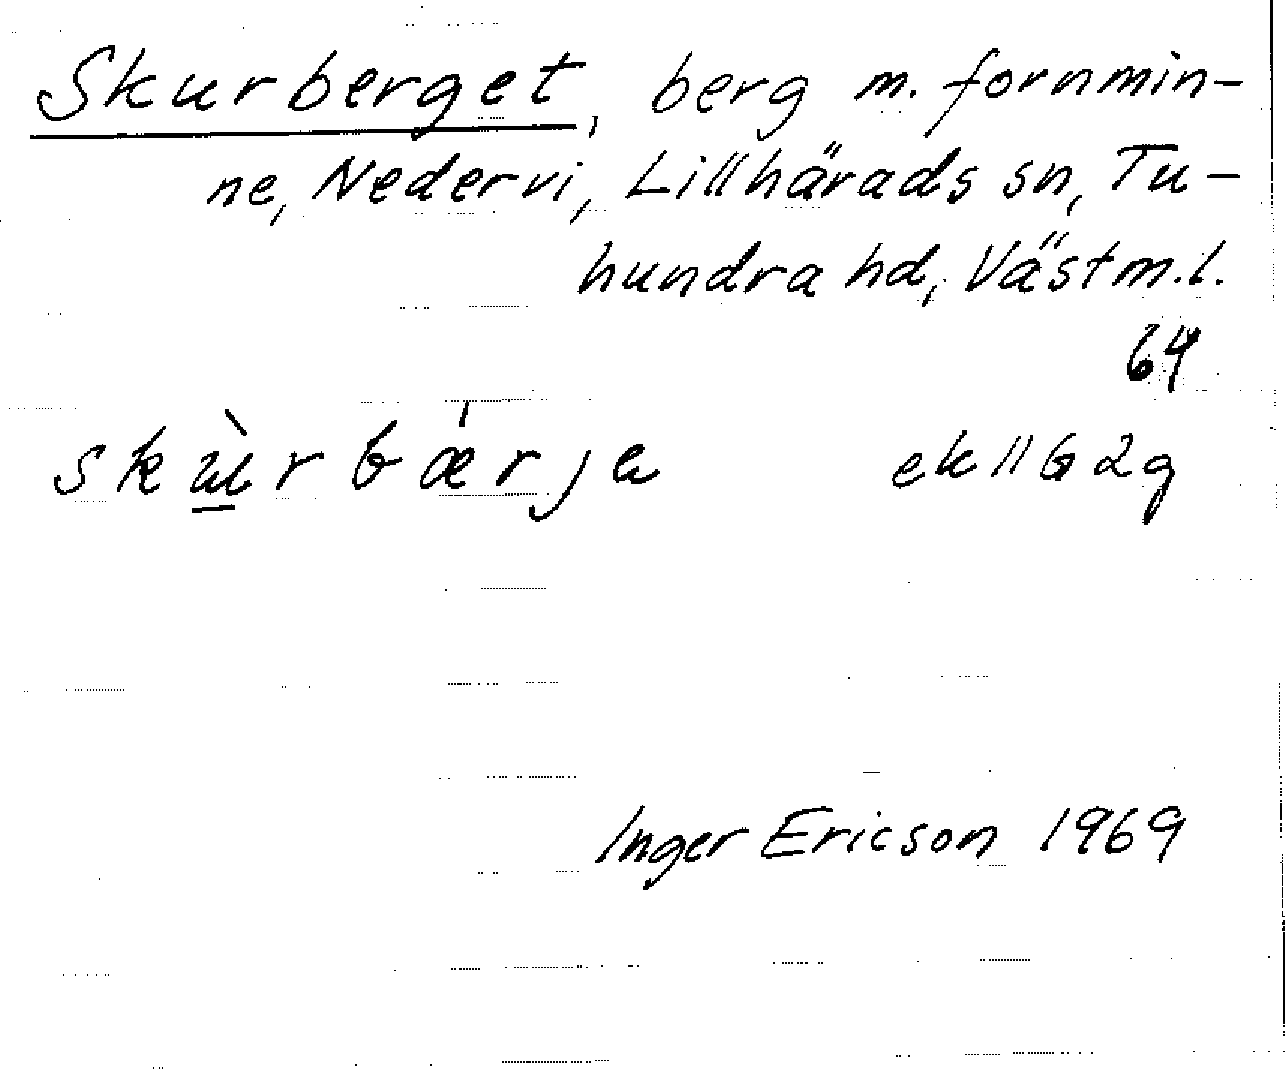 Skurberget, berg m. fornmin-
ne, Nedervi, Lillhärads sn, Tu-
hundra hd, Västm.l.
64
ek 11 G 2g
Inger Ericson 1969